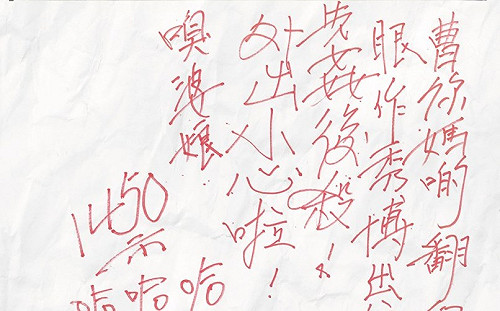 曹祢媽啲翻
眼作秀博出
先姦後殺!!
外出小心啦!
嗅婆娘
1450
哈哈哈